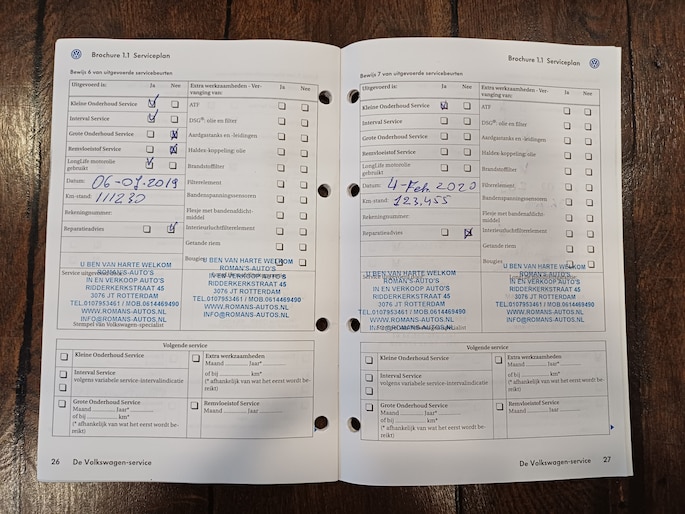 Brochure 1.1 Serviceplan
Bewijs 6 van uitgevoerde servicebeurten
Uitgevoerd is: Ja Nee
Kleine Onderhoud Service
Interval Service
Grote Onderhoud Service
Remvloeistof Service
LongLife motorolie
gebruikt
Datum: 06-07-2019
Km-stand: 111230
Rekeningnummer:
Reparatieadvies
Extra werkzaamheden - Ver-
vanging van: Ja Nee
ATF
DSG®: olie en filter
Aardgastanks en -leidingen
Haldex-koppeling: olie
Brandstoffilter
Filterelement
Bandenspanningssensoren
Flesje met bandenafdicht-
middel
Interieurluchtfilterelement
Getande riem
Bougies
U BEN VAN HARTE WELKOM
ROMAN'S AUTO'S
IN EN VERKOOP AUTO'S
RIDDERKERKSTRAAT 45
3076 JT ROTTERDAM
TEL.0107953461 / MOB.0614469490
WWW.ROMANS-AUTOS.NL
INFO@ROMANS-AUTOS.NL
U BEN VAN HARTE WELKOM
ROMAN'S AUTO'S
IN EN VERKOOP AUTO'S
RIDDERKERKSTRAAT 45
3076 JT ROTTERDAM
TEL.0107953461 / MOB.0614469490
WWW.ROMANS-AUTOS.NL
INFO@ROMANS-AUTOS.NL
Stempel van Volkswagen-specialist
Volgende service
Kleine Onderhoud Service
Interval Service
volgens variabele service-intervalindicatie
Grote Onderhoud Service
Maand .......... Jaar*..........
of bij .......... km*
(* afhankelijk van wat het eerst wordt be-
reikt)
Extra werkzaamheden
Maand .......... Jaar*..........
of bij .......... km*
(* afhankelijk van wat het eerst wordt be-
reikt)
Remvloeistof Service
Maand .......... Jaar..........
26 De Volkswagen-service
Brochure 1.1 Serviceplan
Bewijs 7 van uitgevoerde servicebeurten
Uitgevoerd is: Ja Nee
Kleine Onderhoud Service
Interval Service
Grote Onderhoud Service
Remvloeistof Service
LongLife motorolie
gebruikt
Datum: 4-Feb 2020
Km-stand: 123,455
Rekeningnummer:
Reparatieadvies
Extra werkzaamheden - Ver-
vanging van: Ja Nee
ATF
DSG®: olie en filter
Aardgastanks en -leidingen
Haldex-koppeling: olie
Brandstoffilter
Filterelement
Bandenspanningssensoren
Flesje met bandenafdicht-
middel
Interieurluchtfilterelement
Getande riem
Bougies
U BEN VAN HARTE WELKOM
ROMAN'S AUTO'S
IN EN VERKOOP AUTO'S
RIDDERKERKSTRAAT 45
3076 JT ROTTERDAM
TEL.0107953461 / MOB.0614469490
WWW.ROMANS-AUTOS.NL
INFO@ROMANS-AUTOS.NL
U BEN VAN HARTE WELKOM
ROMAN'S AUTO'S
IN EN VERKOOP AUTO'S
RIDDERKERKSTRAAT 45
3076 JT ROTTERDAM
TEL.0107953461 / MOB.0614469490
WWW.ROMANS-AUTOS.NL
INFO@ROMANS-AUTOS.NL
Volgende service
Kleine Onderhoud Service
Interval Service
volgens variabele service-intervalindicatie
Grote Onderhoud Service
Maand .......... Jaar*..........
of bij .......... km*
(* afhankelijk van wat het eerst wordt be-
reikt)
Extra werkzaamheden
Maand .......... Jaar*..........
of bij .......... km*
(* afhankelijk van wat het eerst wordt be-
reikt)
Remvloeistof Service
Maand .......... Jaar
De Volkswagen-service 27